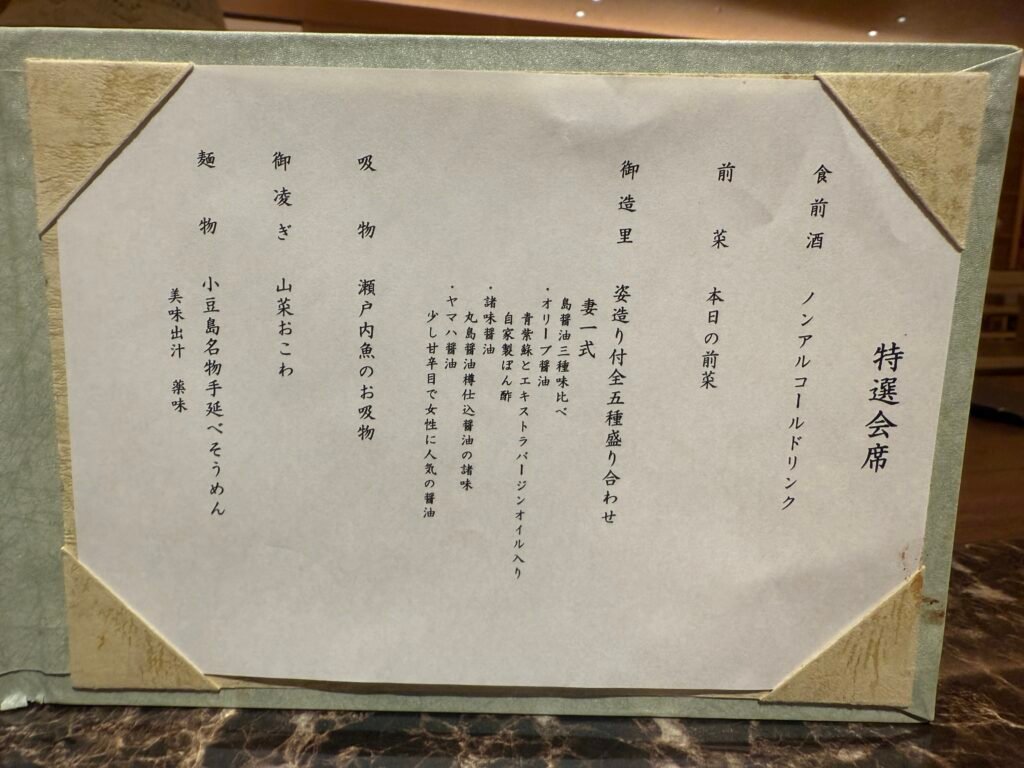 特選会席
食前酒 ノンアルコールドリンク
前菜 本日の前菜
御造里 姿造り付全五種盛り合わせ
妻一式
島醤油三種味比べ
・オリーブ醤油
青紫蘇とエキストラバージンオイル入り
自家製ぽん酢
・諸味醤油
丸島醤油樽仕込醤油の諸味
・ヤマハ醤油
少し甘辛目で女性に人気の醤油
吸物 瀬戸内魚のお吸物
御凌ぎ 山菜おこわ
麺物 小豆島名物手延べそうめん
美味出汁 薬味